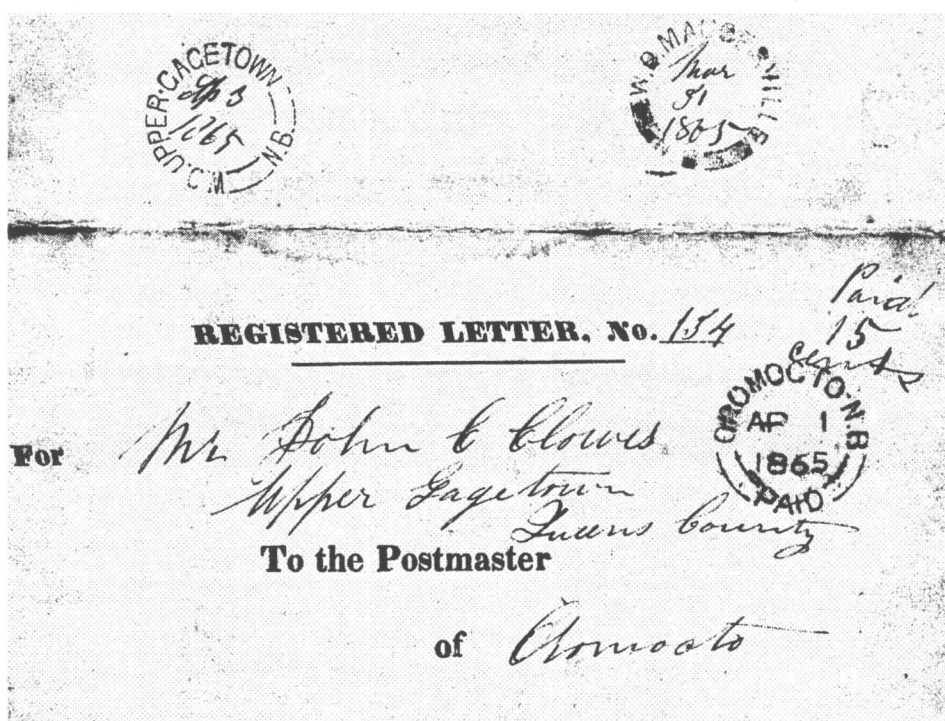 UPPER·GAGETOWN
Ap 3
1865
W.O.M. N.B.
W.O. MAUGERVILLE
Mar
31
1865
Paid
15
cents
REGISTERED LETTER, No. 154
OROMOCTO·N.B
AP 1
1865
PAID
For Mr John C Clowes
Upper Gagetown
Queens County
To the Postmaster
of Oromocto